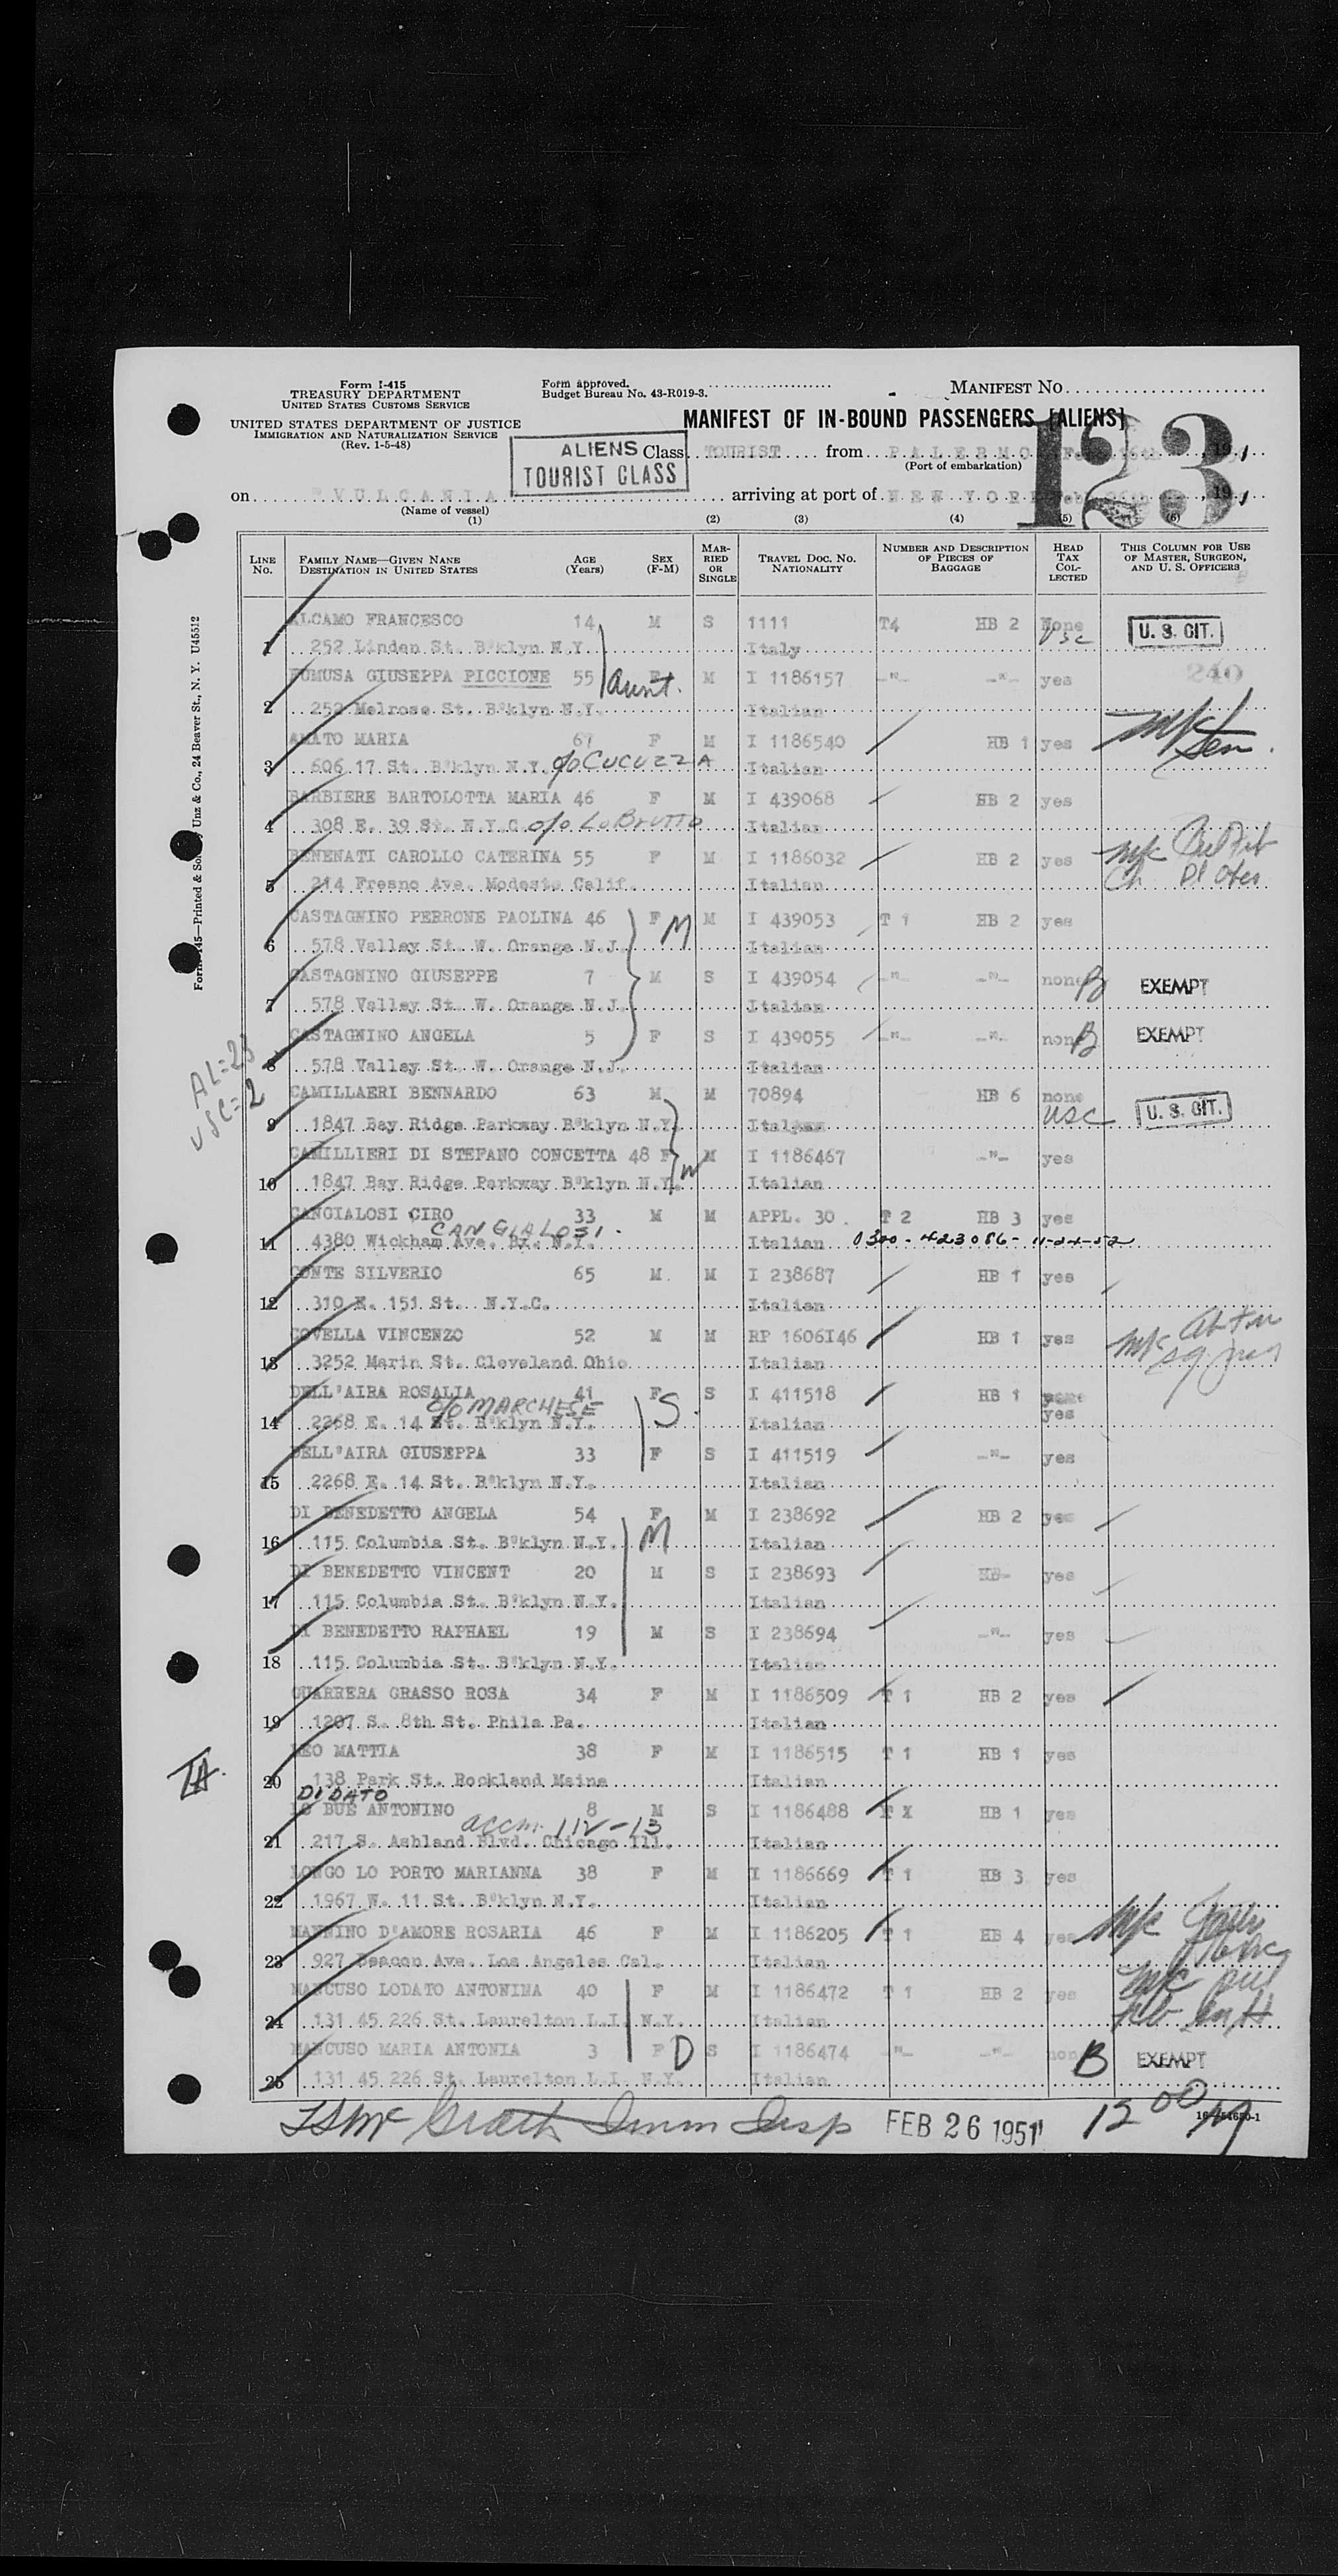 Form I-415
TREASURY DEPARTMENT
UNITED STATES CUSTOMS SERVICE
UNITED STATES DEPARTMENT OF JUSTICE
IMMIGRATION AND NATURALIZATION SERVICE
(Rev. 1-5-48)
Form approved.
Budget Bureau No. 43-R019-3.
MANIFEST NO.
MANIFEST OF IN-BOUND PASSENGERS (ALIENS)
123
ALIENS
TOURIST CLASS
Class TOURIST from PALERMO
(Port of embarkation)
on VULCANIA arriving at port of NEW YORK
(Name of vessel)
(1) (2) (3) (4) (5) (6)
LINE No. FAMILY NAME—GIVEN NAME DESTINATION IN UNITED STATES AGE (Years) SEX (F-M) MARRIED OR SINGLE TRAVEL DOC. NO. NATIONALITY NUMBER AND DESCRIPTION OF PIECES OF BAGGAGE HEAD TAX COLLECTED THIS COLUMN FOR USE OF MASTER, SURGEON, AND U. S. OFFICERS
ALCAMO FRANCESCO 14 M S 1111 T4 HB 2 None U. S. CIT.
1 252 Linden St. B"klyn N.Y. Italy USC
FUMUSA GIUSEPPA PICCIONE 55 F Aunt. M I 1186157 -"- -"- yes 240
2 252 Melrose St. B"klyn N.Y. Italian
AMATO MARIA 67 F M I 1186540 HB 1 yes
3 606 17 St. B"klyn N.Y. c/o CUCUZZA Italian
BARBIERE BARTOLOTTA MARIA 46 F M I 439068 HB 2 yes
4 308 E. 39 St. N.Y.C. c/o Lo BRUTTO Italian
BENENATI CAROLLO CATERINA 55 F M I 1186032 HB 2 yes
5 214 Fresno Ave. Modesto Calif. Italian
CASTAGNINO PERRONE PAOLINA 46 F M M I 439053 T 1 HB 2 yes
6 578 Valley St. W. Orange N.J. Italian
CASTAGNINO GIUSEPPE 7 M S I 439054 -"- -"- none B EXEMPT
7 578 Valley St. W. Orange N.J. Italian
CASTAGNINO ANGELA 5 F S I 439055 -"- -"- none B EXEMPT
8 578 Valley St. W. Orange N.J. Italian
AL=23
USC=2
CAMILLAERI BENNARDO 63 M M 70894 HB 6 none U. S. CIT.
9 1847 Bay Ridge Parkway B"klyn N.Y. Italian USC
CAMILLIERI DI STEFANO CONCETTA 48 F W M I 1186467 -"- yes
10 1847 Bay Ridge Parkway B"klyn N.Y. Italian
CANGIALOSI CIRO 33 M M APPL. 30 T 2 HB 3 yes
CANGIALOSI
11 4380 Wickham Ave. Bx. N.Y. Italian 0300-423086-11-24-52
CONTE SILVERIO 65 M M I 238687 HB 1 yes
12 310 E. 151 St. N.Y.C. Italian
COVELLA VINCENZO 52 M M RP 1606I46 HB 1 yes
13 3252 Marin St. Cleveland Ohio Italian
DELL'AIRA ROSALIA 41 F S S I 411518 HB 1 yes
c/o MARCHESE
14 2268 E. 14 St. B"klyn N.Y. Italian
DELL'AIRA GIUSEPPA 33 F S I 411519 -"- yes
15 2268 E. 14 St. B"klyn N.Y. Italian
DI BENEDETTO ANGELA 54 F M I 238692 HB 2 yes
16 115 Columbia St. B"klyn N.Y. M Italian
DI BENEDETTO VINCENT 20 M S I 238693 yes
17 115 Columbia St. B"klyn N.Y. Italian
DI BENEDETTO RAPHAEL 19 M S I 238694 -"- yes
18 115 Columbia St. B"klyn N.Y. Italian
GUARRERA GRASSO ROSA 34 F M I 1186509 T 1 HB 2 yes
19 1207 S. 8th St. Phila Pa. Italian
LEO MATTIA 38 F M I 1186515 T 1 HB 1 yes
20 138 Park St. Rockland Maine Italian
DI DATO
LO BUE ANTONINO 8 M S I 1186488 T X HB 1 yes
accm. 112-13
21 217 S. Ashland Blvd. Chicago Ill. Italian
LONGO LO PORTO MARIANNA 38 F M I 1186669 T 1 HB 3 yes
22 1967 W. 11 St. B"klyn N.Y. Italian
MANNINO D'AMORE ROSARIA 46 F M I 1186205 T 1 HB 4 yes
23 927 Beacon Ave. Los Angeles Cal. Italian
MANCUSO LODATO ANTONINA 40 F M I 1186472 T 1 HB 2 yes
24 131 45 226 St. Laurelton L.I. N.Y. Italian
MANCUSO MARIA ANTONIA 3 F D S I 1186474 -"- -"- none B EXEMPT
25 131 45 226 St. Laurelton L.I. N.Y. Italian
McGrath Imm Insp FEB 26 1951 12 00 M